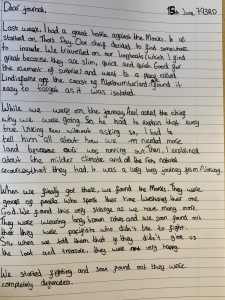 Dear journal,
15th June 793AD
Last week I had a great battle against the Monks. It all
started on Thor's Day. Our chief decided to find somewhere
to invade. We travelled on our longboats (which I find
great because they are slim, quick and quiet. Good for
the element of surprise) and went to a place called
Lindisfarne off the coast of Northumberland. Found it
easy to target as it was isolated.
While we were on the journey, Axel asked the chief
why we were going. So he had to explain that every
true Viking knew without asking so, I had to
tell him all about how we needed more
land because ours was running out. Then I explained
about the milder climate and all the rich natural
resources that they had. It was a very long journey from Norway.
When we finally got there, we found the Monks. They were
groups of people who spend their time worshiping their one
God. We found this very strange as we have many more.
They were wearing long brown robes and we soon found out
that they were pacifists who didn't like to fight.
So when we told them that if they didn't give us
the loot and treasure, they were not very happy.
We started fighting and soon found out they were
completely defenceless.